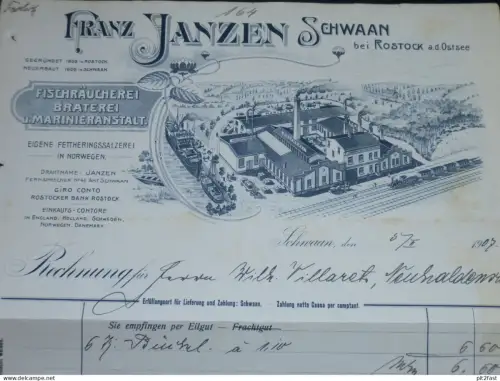 164
FRANZ JANZEN SCHWAAN
bei ROSTOCK a.d. Ostsee
FISCHRÄUCHEREI
BRATEREI
u. MARINIERANSTALT.
EIGENE FETTHERINGSSALZEREI
IN NORWEGEN.
DRAHTNAME: JANZEN
GIRO CONTO
ROSTOCKER BANK ROSTOCK
EINKAUFS-CONTORE
in ENGLAND, HOLLAND, SCHWEDEN,
NORWEGEN, DANEMARK.
Schwaan, den 1907
Rechnung für Herrn Wilh. Villaret, Neuhaldens
Erfüllungsort für Lieferung und Zahlung: Schwaan. Zahlung netto Cassa per comptant.
Sie empfingen per Eilgut – Frachtgut
6 K. Bückl. à 1.10 6 60
6.60